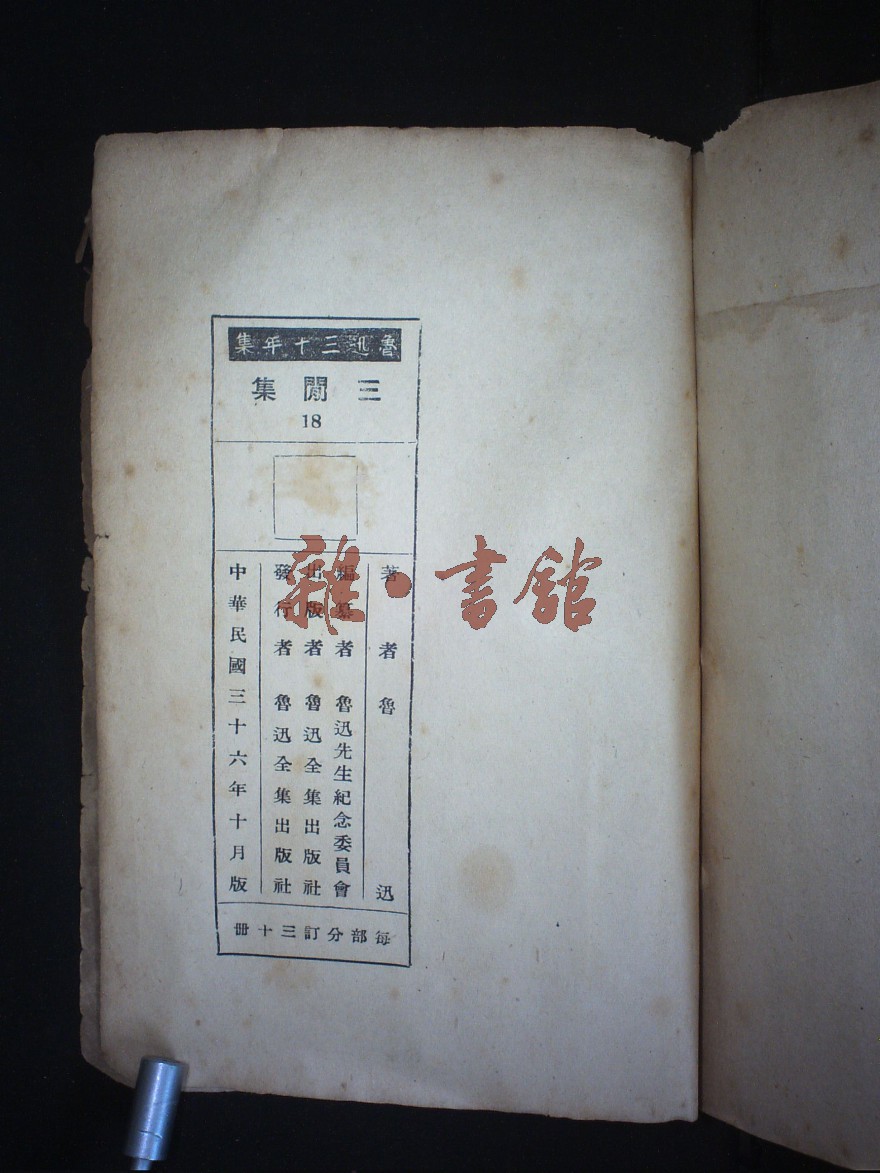 魯迅三十年集
三閒集
18
著者魯迅
編纂者魯迅先生紀念委員會
出版者魯迅全集出版社
發行者魯迅全集出版社
中華民國三十六年十月版
每部分訂三十冊
雜·書館